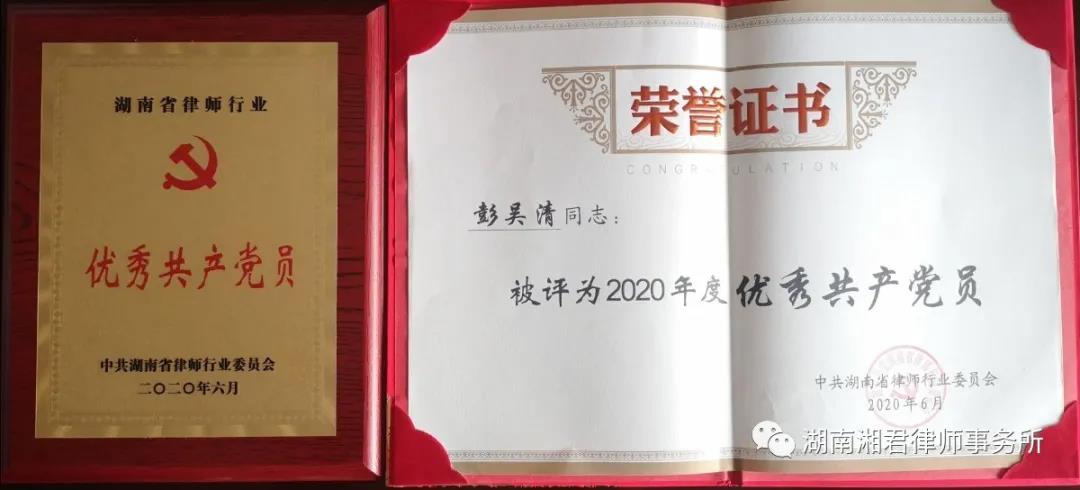 湖南省律师行业
优秀共产党员
中共湖南省律师行业委员会
二〇二〇年六月
荣誉证书
CONGRATULATION
彭吴清同志：
被评为2020年度优秀共产党员
中共湖南省律师行业委员会
2020年6月
湖南湘君律师事务所